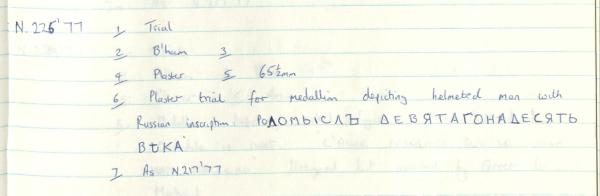 N. 226'77 1 Trial
2 B'ham 3
4 Plaster 5 65½mm
6 Plaster trial for medallion depicting helmeted man with
Russian inscription РОДОМЫСЛЪ ДЕВЯТАГОНАДЕСЯТЬ
ВѢКА
7 As N.217'77